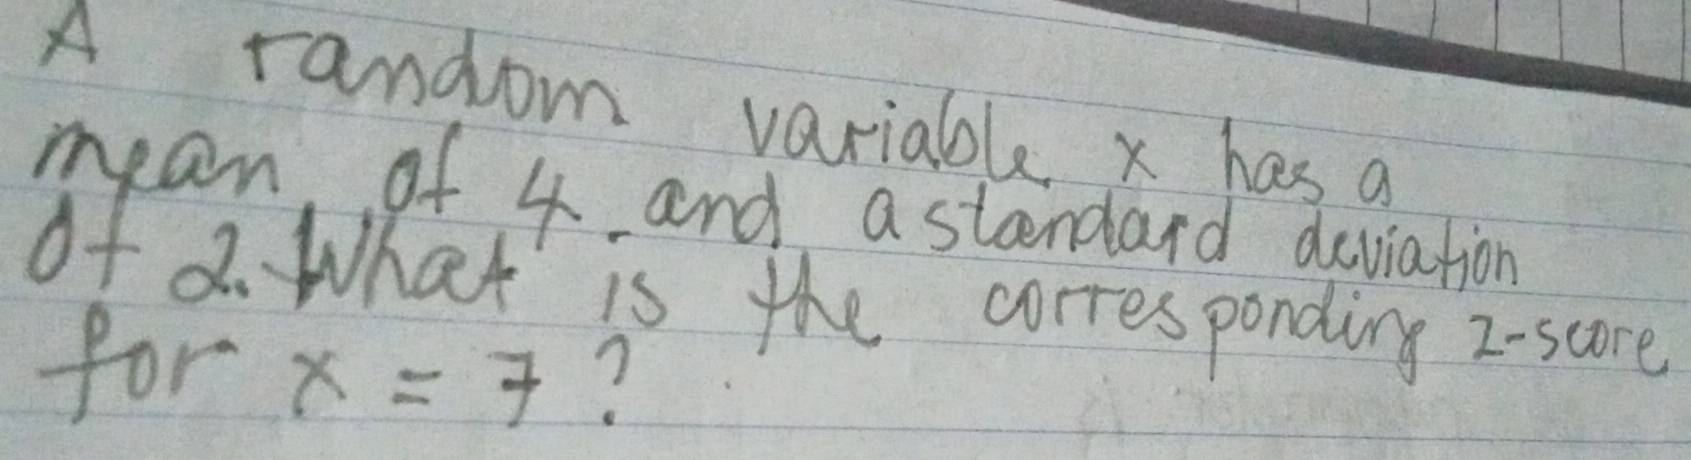 A random variable x has a
mean of 4 and a standard deviation
of 2. What is the corresponding z-score
for x = 7?